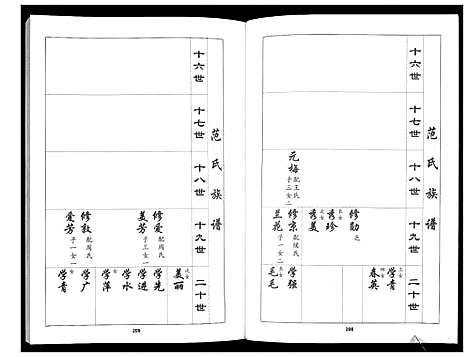 范氏族谱
十六世
十七世
十八世
十九世
二十世
元梅 配王氏 子三女二
修勋 之
长女 秀珍
次女 秀美
修京 配侯氏 子一女二
兰花
三女 学青
四女 春英
学强
毛毛
208
范氏族谱
十六世
十七世
十八世
十九世
二十世
修爱 配周氏
美芳 子三女一
修敖 配周氏
爱芳 子一女一
次女 美丽
学先
学进
学水
女 学萍
学广
女 学青
209